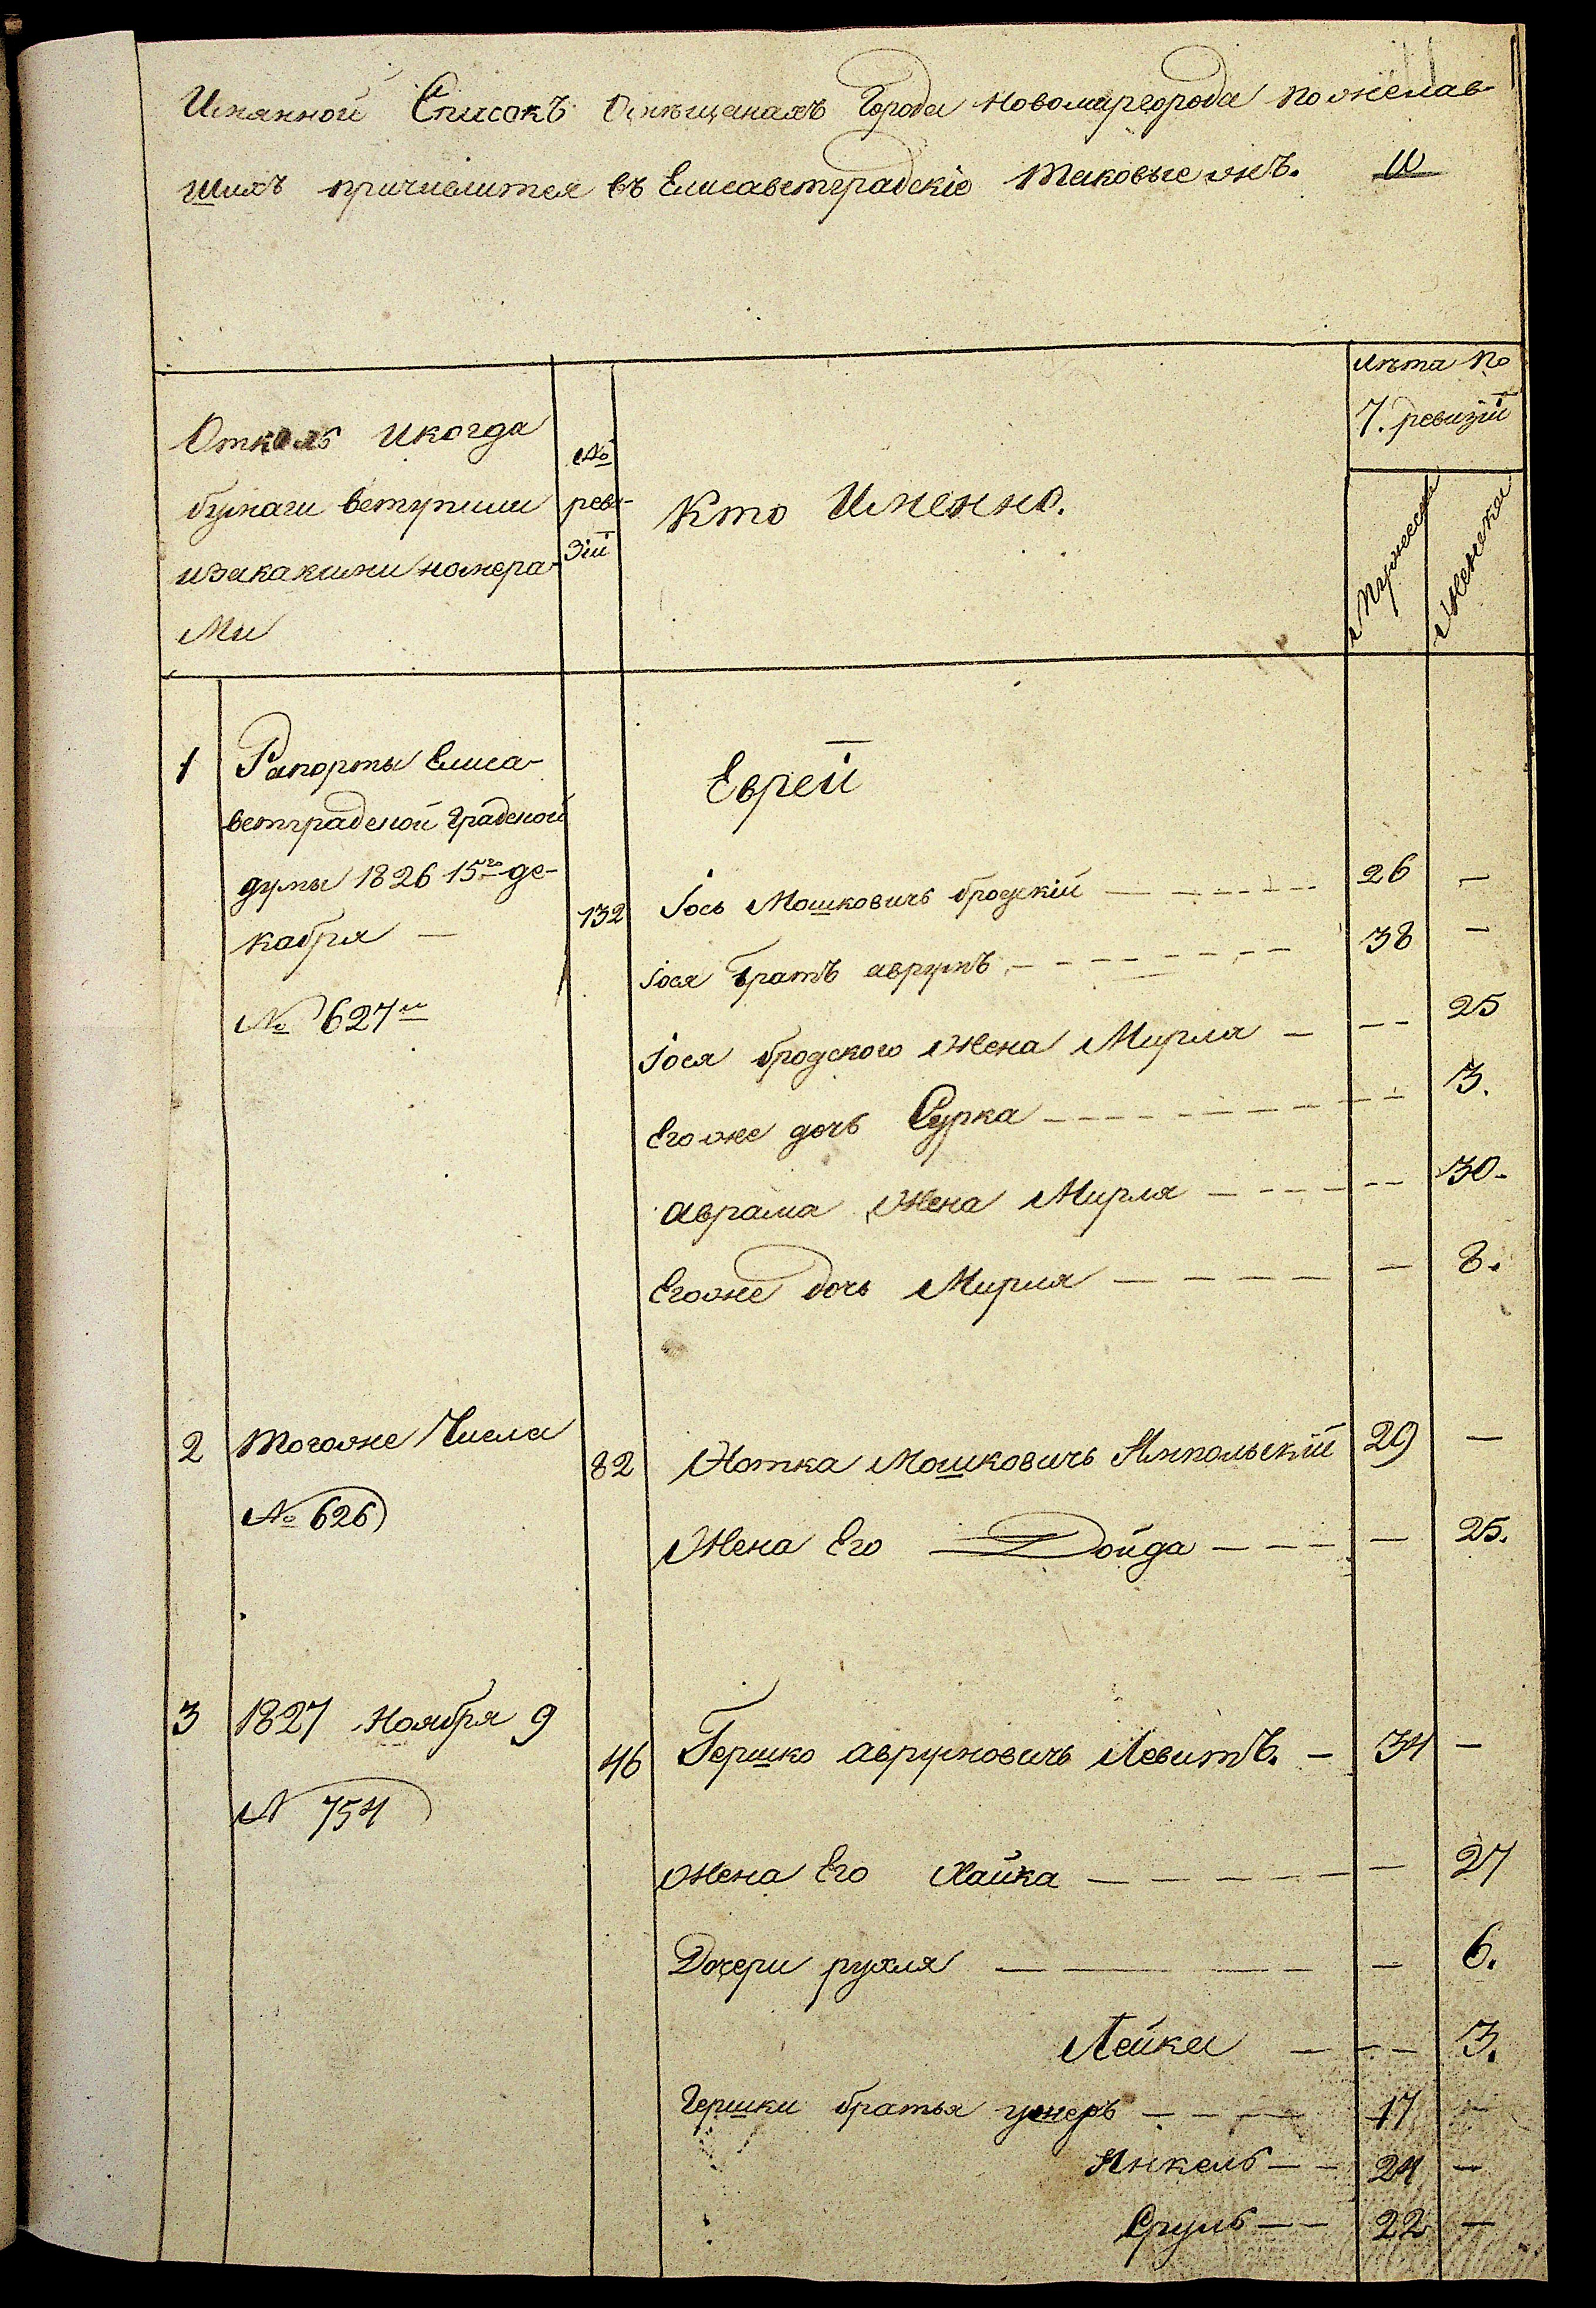 Имянной Списокъ Омѣщанахъ Города Новомиргорода пожелав-
шихъ причислится въ Елисаветградскіе таковые жъ.
лѣта по
7. ревизіи
Мужеска
Женска
Отколь икогда
бумаги вступили
изакакими номера-
ми
№
реви-
зіи
Кто Именно.
Евреи
1 Рапорты Елиса-
ветградской Градской
думы 1826 15го де-
кабря —
№ 627м
132 Іось Мошковичь бродскій — 26 —
Іося братъ аврумъ — 38 —
Іося бродского Жена Мирля — — 25
Егоже дочь Сурка — — 3.
аврама Жена Мирля — — 30.
Егоже дочь Мирля — — 8.
2 тогоже Числа
№ 626
82 Нотка Мошковичь Ямпольскій 29 —
Жена Его Дойда — — 25.
3 1827 Ноября 9
N 754
46 Гершко аврумовичь Левитъ. — 34 —
Жена Его Хайка — — 27
Дочери рухля — — 6.
Лейка — — 3.
Гершки братья — 17 —
Янкель — 24 —
Сруль — 22 —